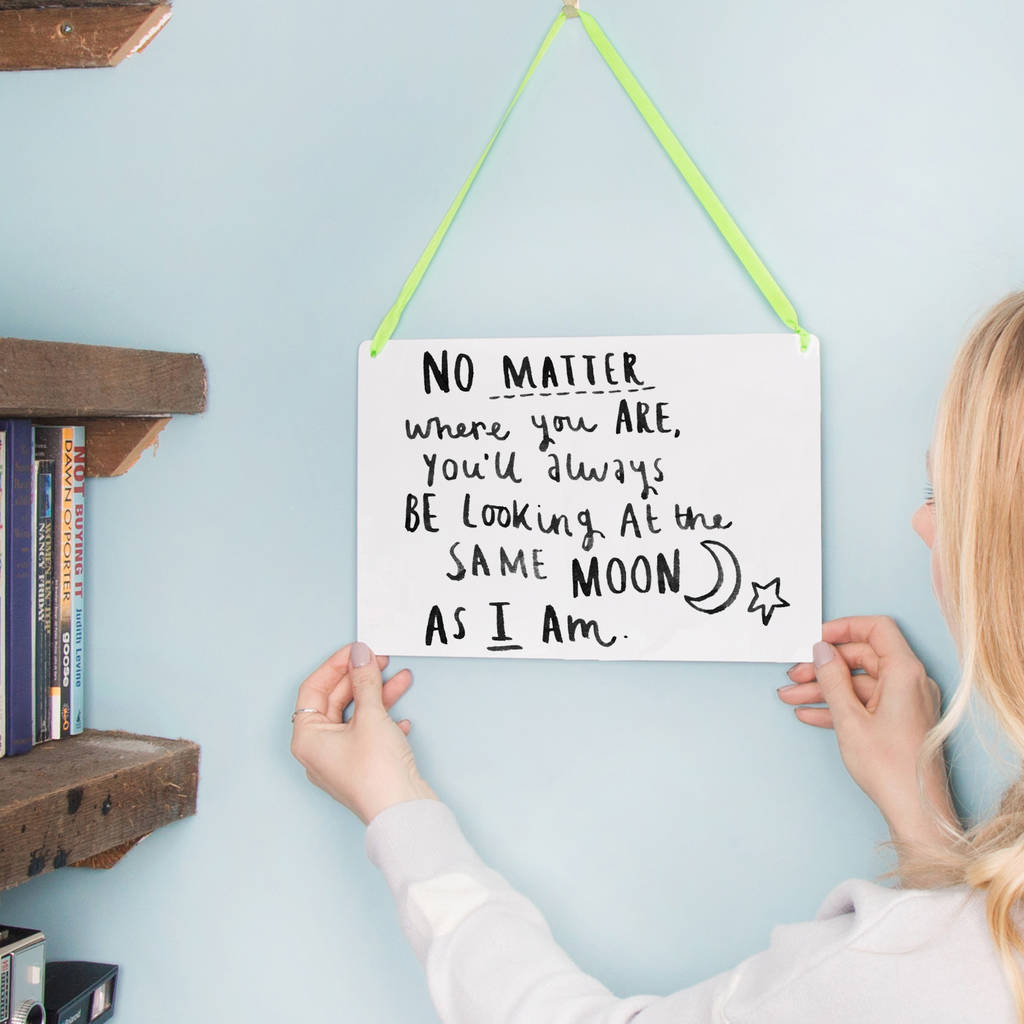 NO MATTER
where you ARE,
you'll always
BE Looking At the
SAME MOON
AS I AM.
NOT BUYING IT Judith Levine
DAWN O'PORTER goose
NANCY FRIDAY
Polaroid